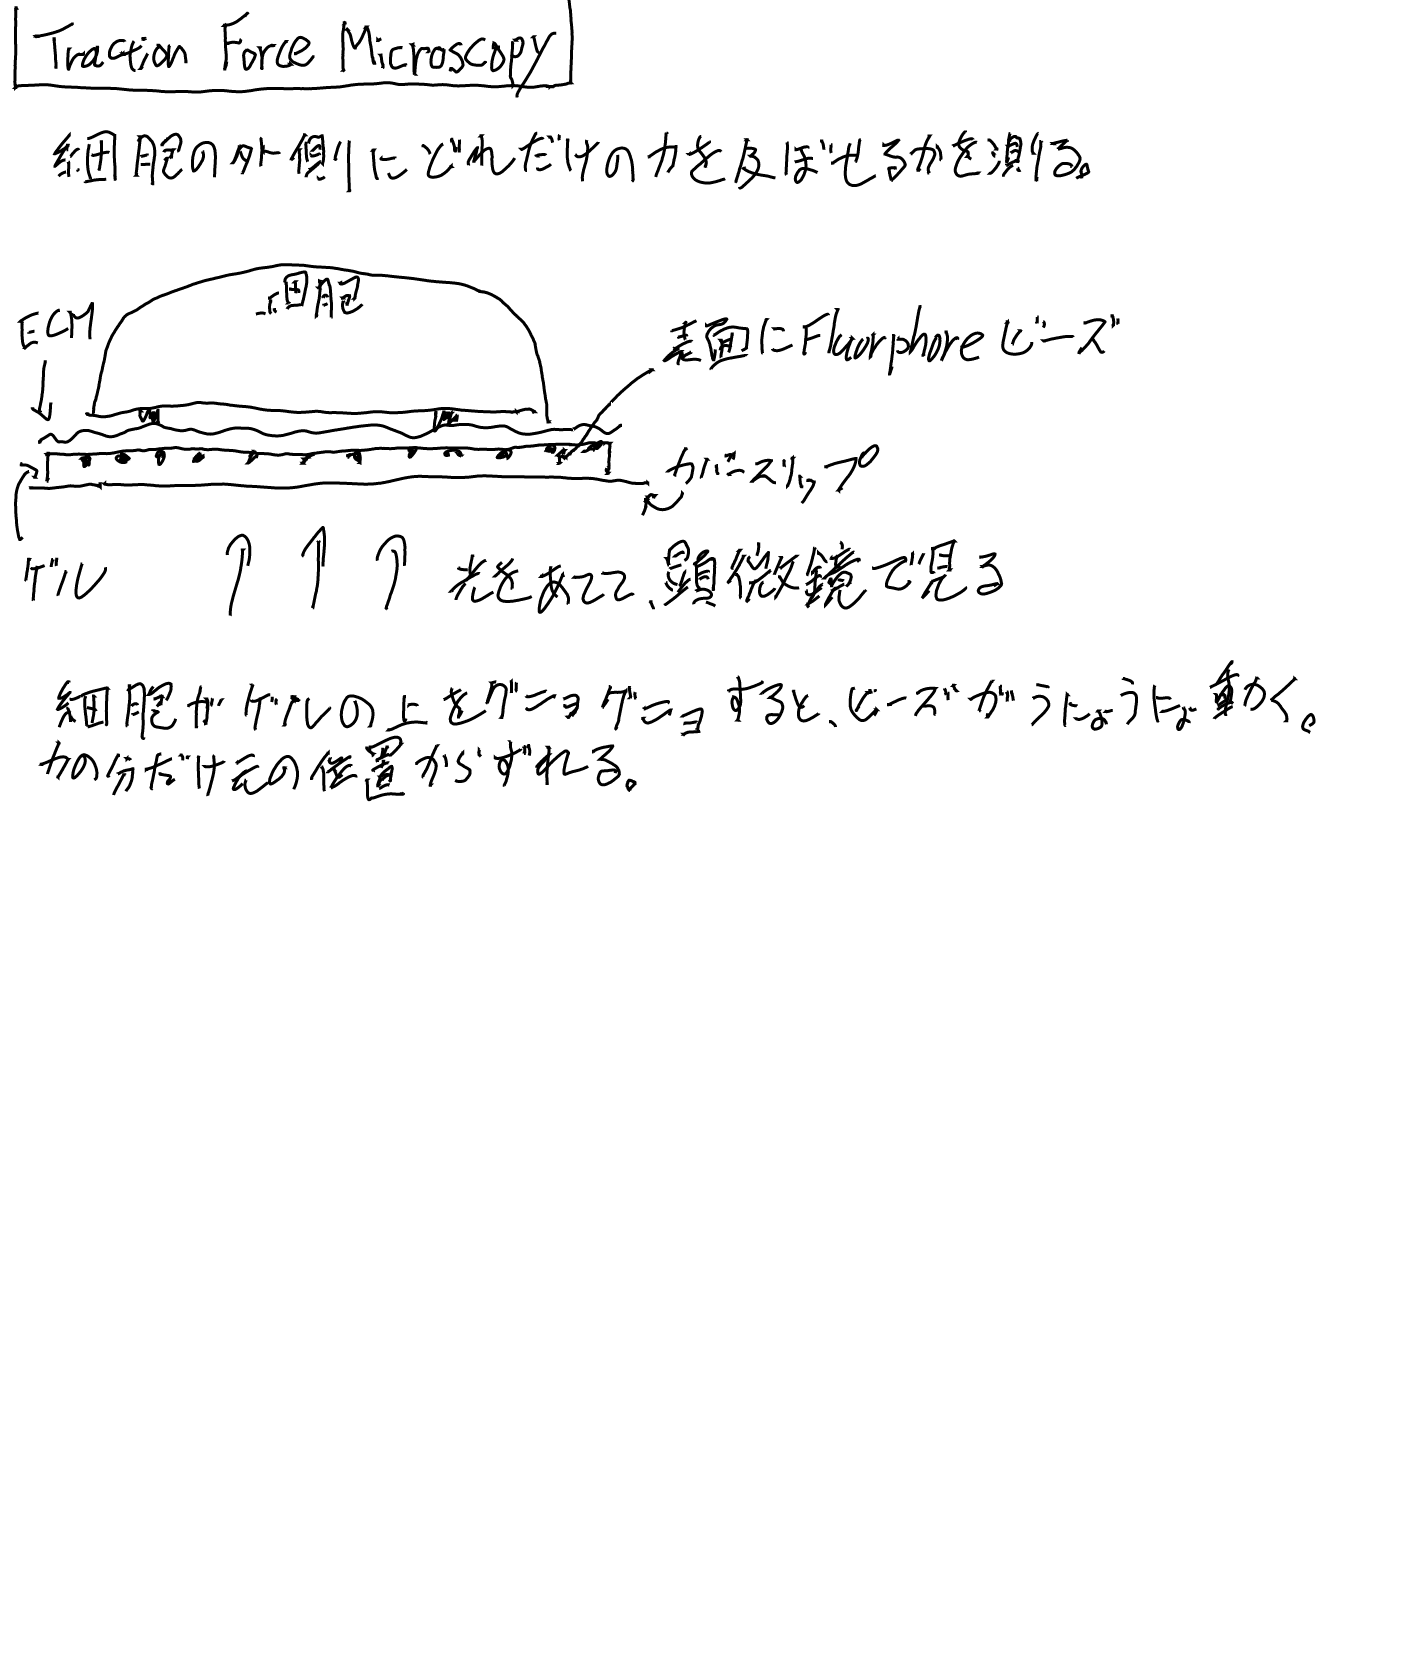 Traction Force Microscopy
細胞の外側にどれだけの力を及ぼせるかを測る。
細胞
ECM
表面にFluorphoreビーズ
カバースリップ
ゲル
光をあてて、顕微鏡で見る
細胞がゲルの上をグニョグニョすると、ビーズがうにょうにょ動く。
力の分だけ元の位置からずれる。